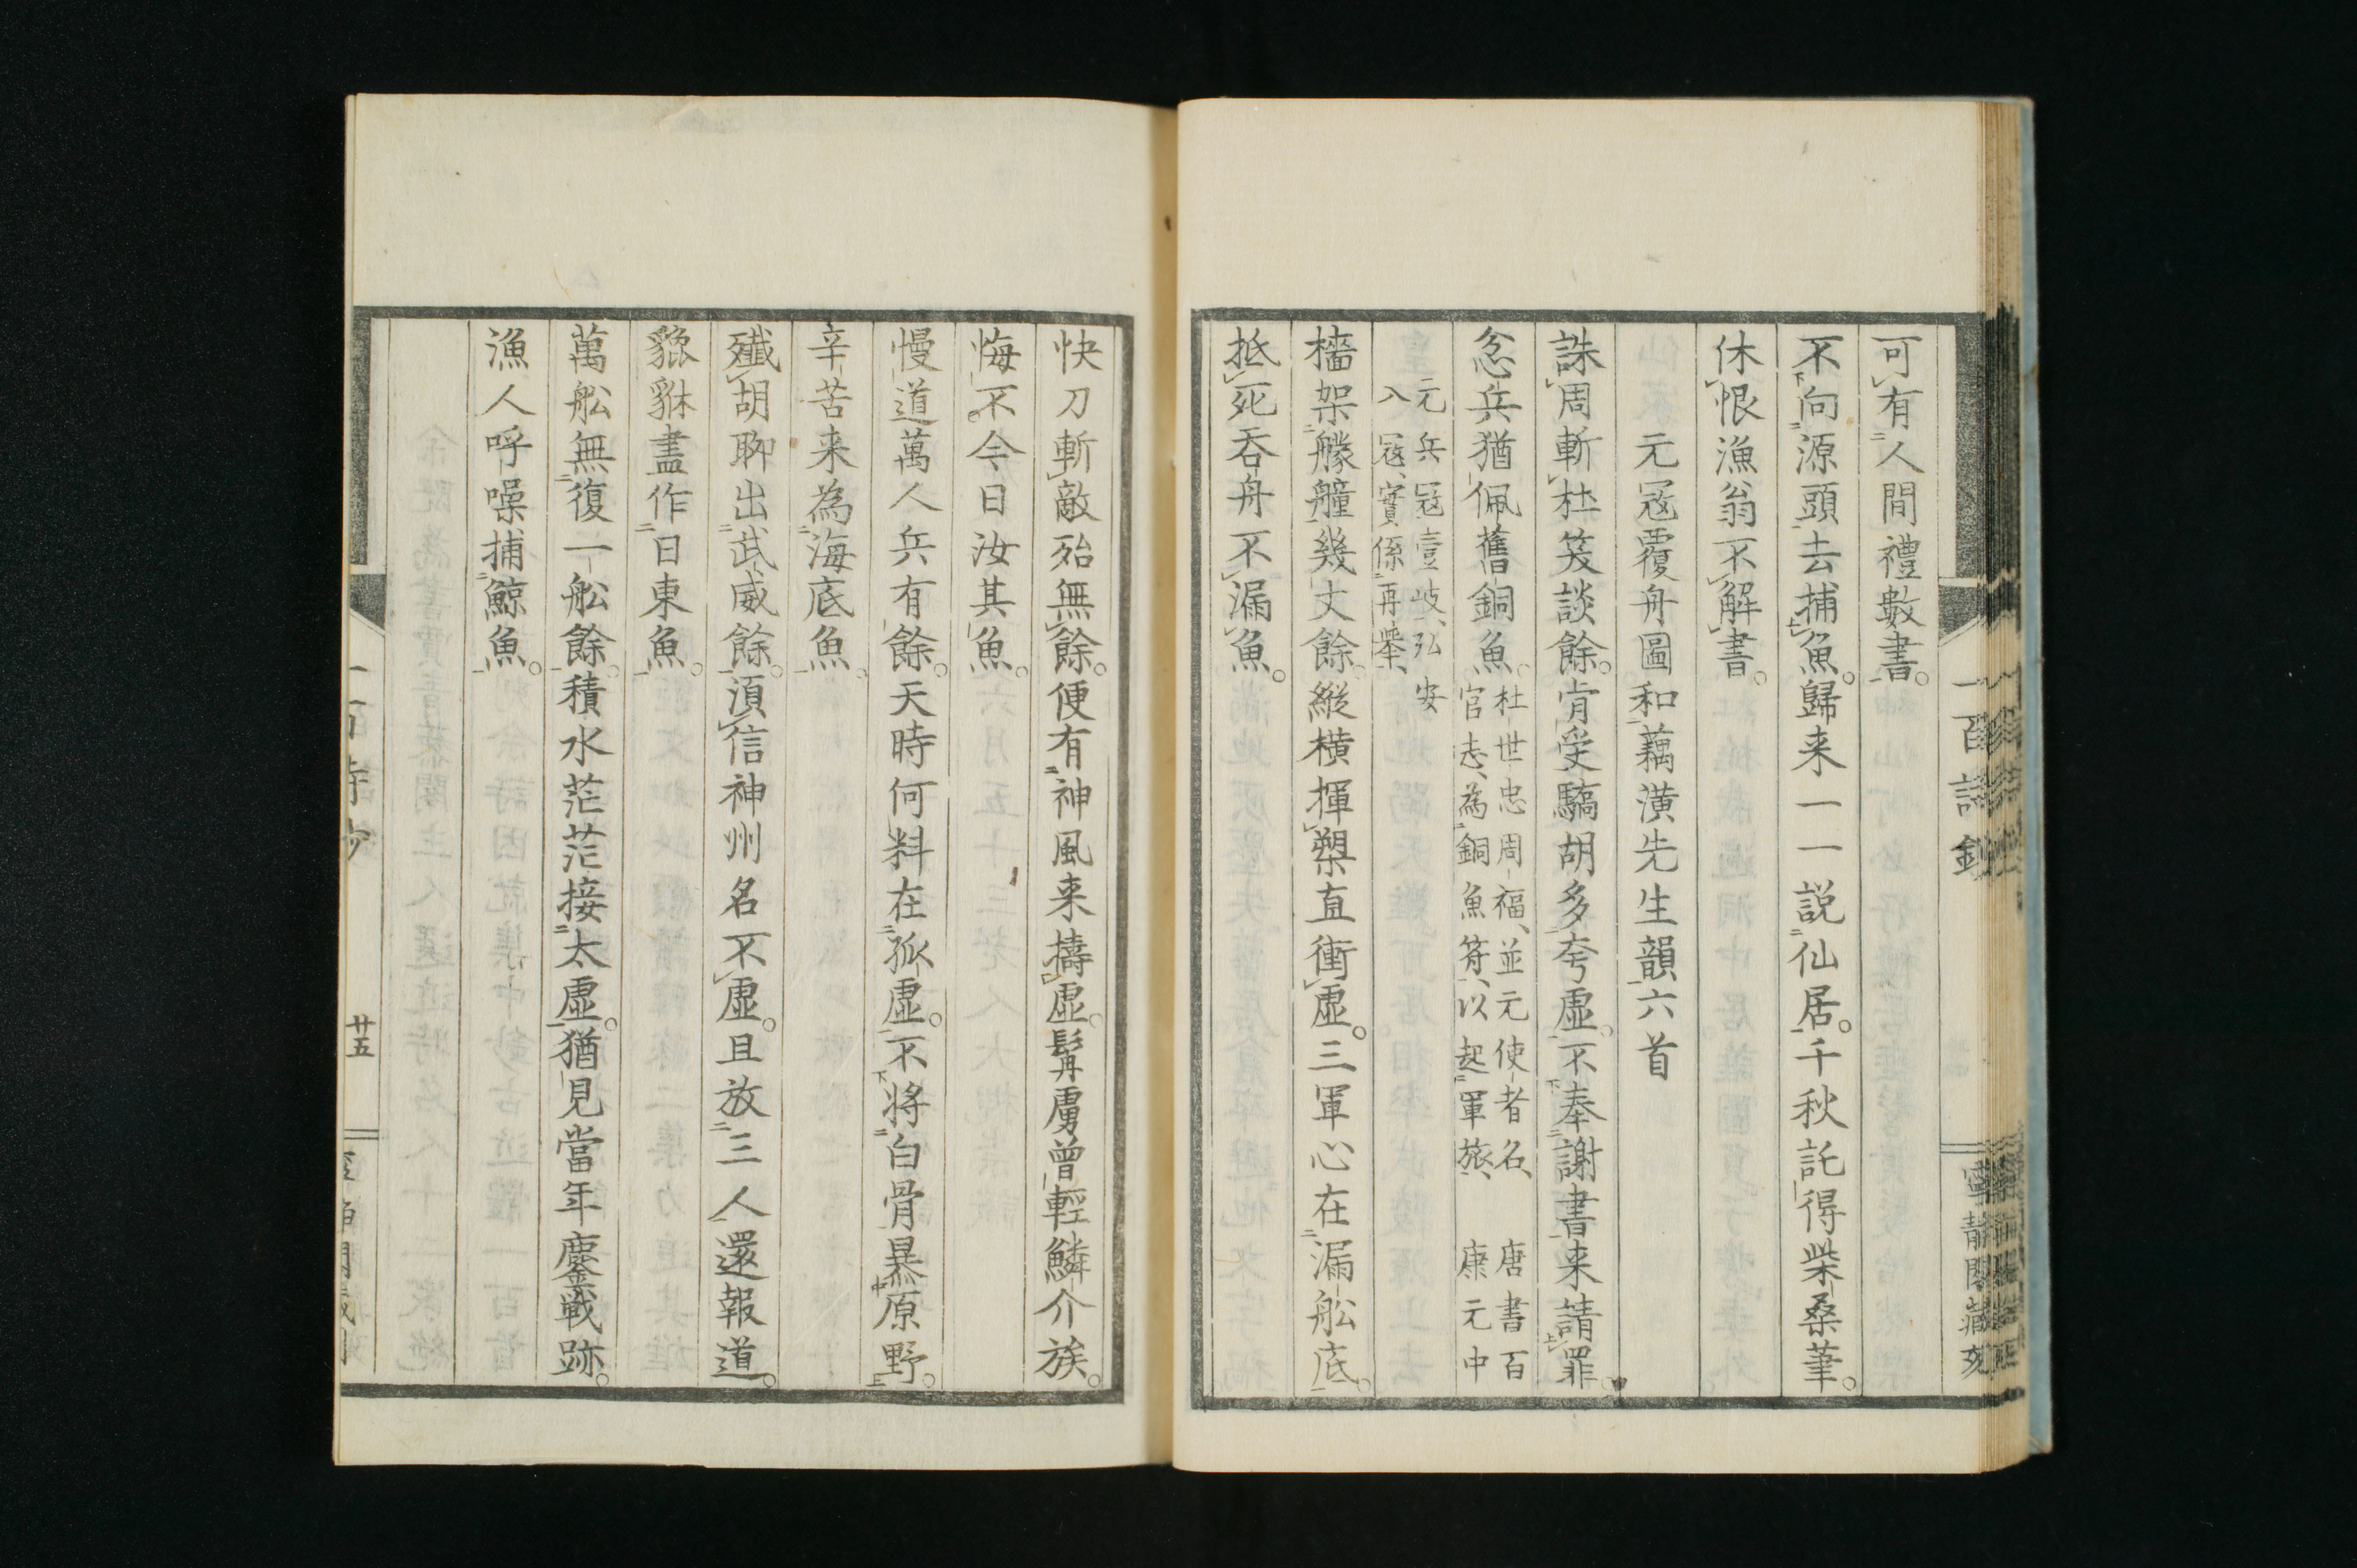 可有人間禮數書。
不向源頭去捕魚。歸来一一説仙居。千秋託得柴桑筆。
休恨漁翁不解書。
元寇覆舟圖和藕潢先生韻六首
誅周斬杜笑談餘。肯受驕胡多夸虛。不奉謝書来請罪。
忿兵猶佩舊銅魚。
杜世忠周福、並元使者名、唐書百
官志、為銅魚符、以起軍旅、康元中
元兵寇壹岐、弘安
入寇、實係再擧、
檣架艨艟幾丈餘。縱横揮槊直衝虛。三軍心在漏船底。
抵死吞舟不漏魚。
一百詩鈔
寧靜閣藏刻
快刀斬敵殆無餘。便有神風来擣虛。髯虜曾輕鱗介族。
悔不今日汝其魚。
慢道萬人兵有餘。天時何料在孤虛。不將白骨暴原野。
辛苦来為海底魚。
殲胡聊出武威餘。須信神州名不虛。且放三人還報道。
貔貅盡作日東魚。
萬舩無復一舩餘。積水茫茫接太虛。猶見當年鏖戰跡。
漁人呼噪捕鯨魚。
廿五